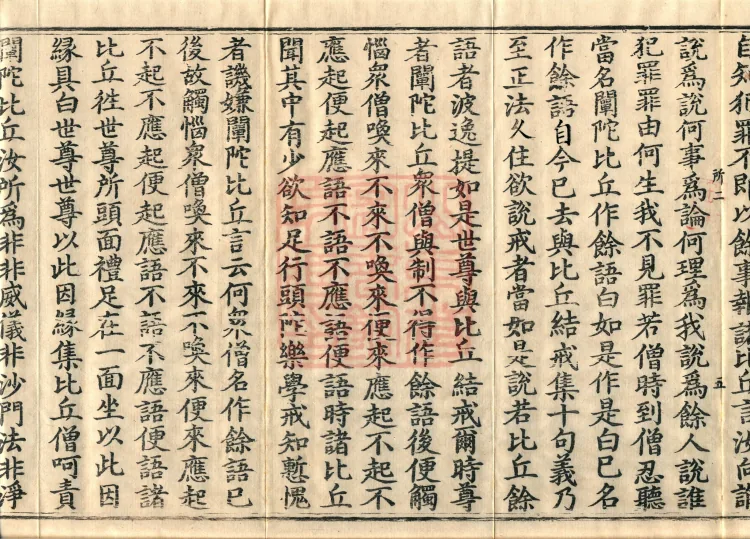 自知犯罪不即以餘事報諸比丘言汝向誰
說為說何事為論何理為我說為餘人說誰
所二
五
犯罪罪由何生我不見罪若僧時到僧忍聽
當名闡陀比丘作餘語白如是作是白已名
作餘語自今已去與比丘結戒集十句義乃
至正法久住欲說戒者當如是說若比丘餘
語者波逸提如是世尊與比丘結戒爾時尊
者闡陀比丘眾僧與制不得作餘語後便觸
惱眾僧喚來不來不喚來便來應起不起不
應起便起應語不語不應語便語時諸比丘
聞其中有少欲知足行頭陀樂學戒知慙愧
者譏嫌闡陀比丘言云何眾僧名作餘語已
後故觸惱眾僧喚來不來不喚來便來應起
不起不應起便起應語不語不應語便語諸
比丘往世尊所頭面禮足在一面坐以此因
緣具白世尊世尊以此因緣集比丘僧呵責
闡陀比丘汝所為非非威儀非沙門法非淨